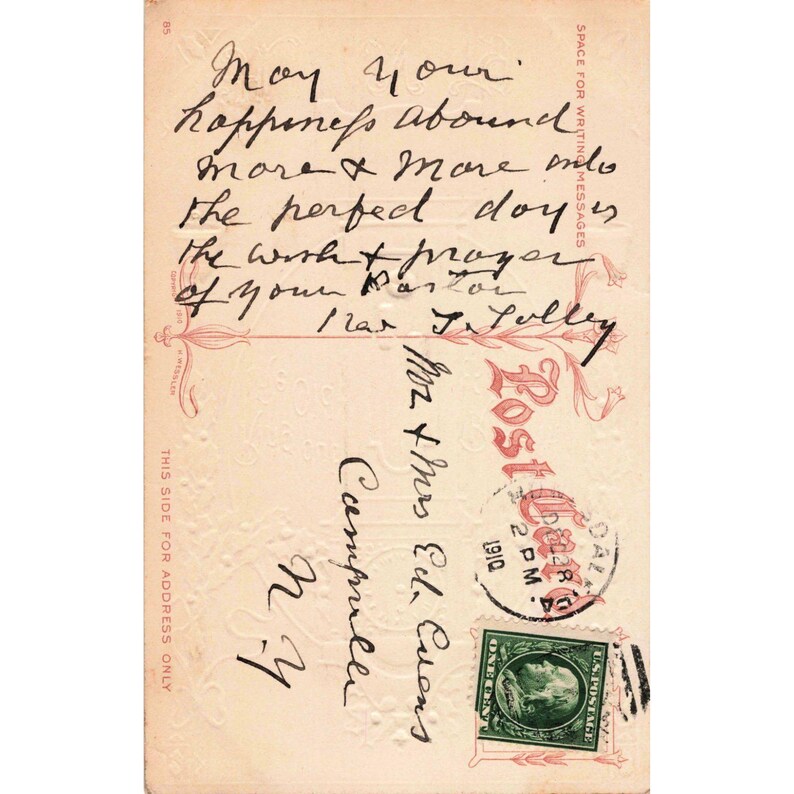 85
SPACE FOR WRITING MESSAGES
May Your
happiness abound
more & more into
the perfect day is
the wish & prayer
of your Pastor
J. Tolley
COPYRIGHT 1910 H. WESSLER
THIS SIDE FOR ADDRESS ONLY
Post Card
Mr. & Mrs Ed. Evens
Campville
N.Y
DEC 28
2 PM
1910
PA.
U.S. POSTAGE
ONE CENT